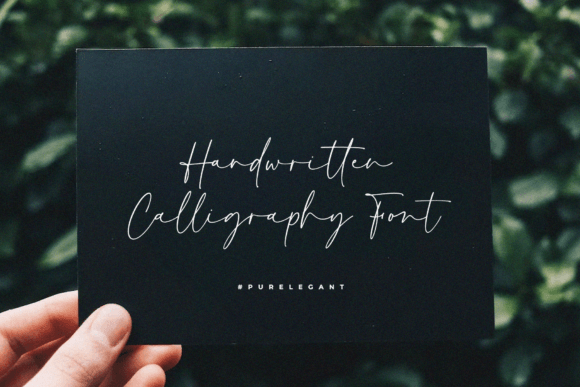 Handwritten
Calligraphy Font
#PURELEGANT